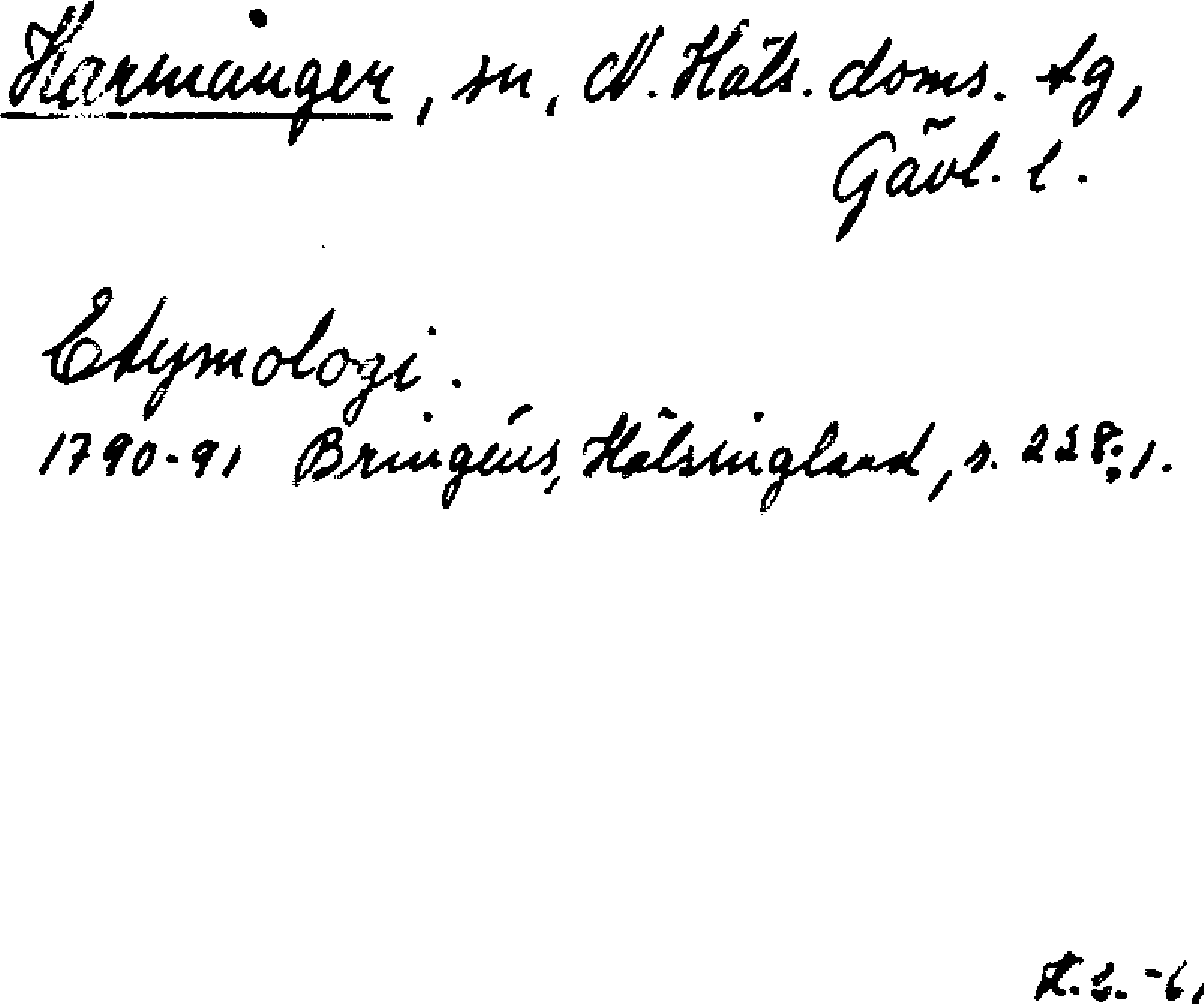 Harmånger, sn, N. Häls. doms. tg,
Gävl. l.
Etymologi.
1790-91 Bringéus, Hälsingland, s. 228:1.